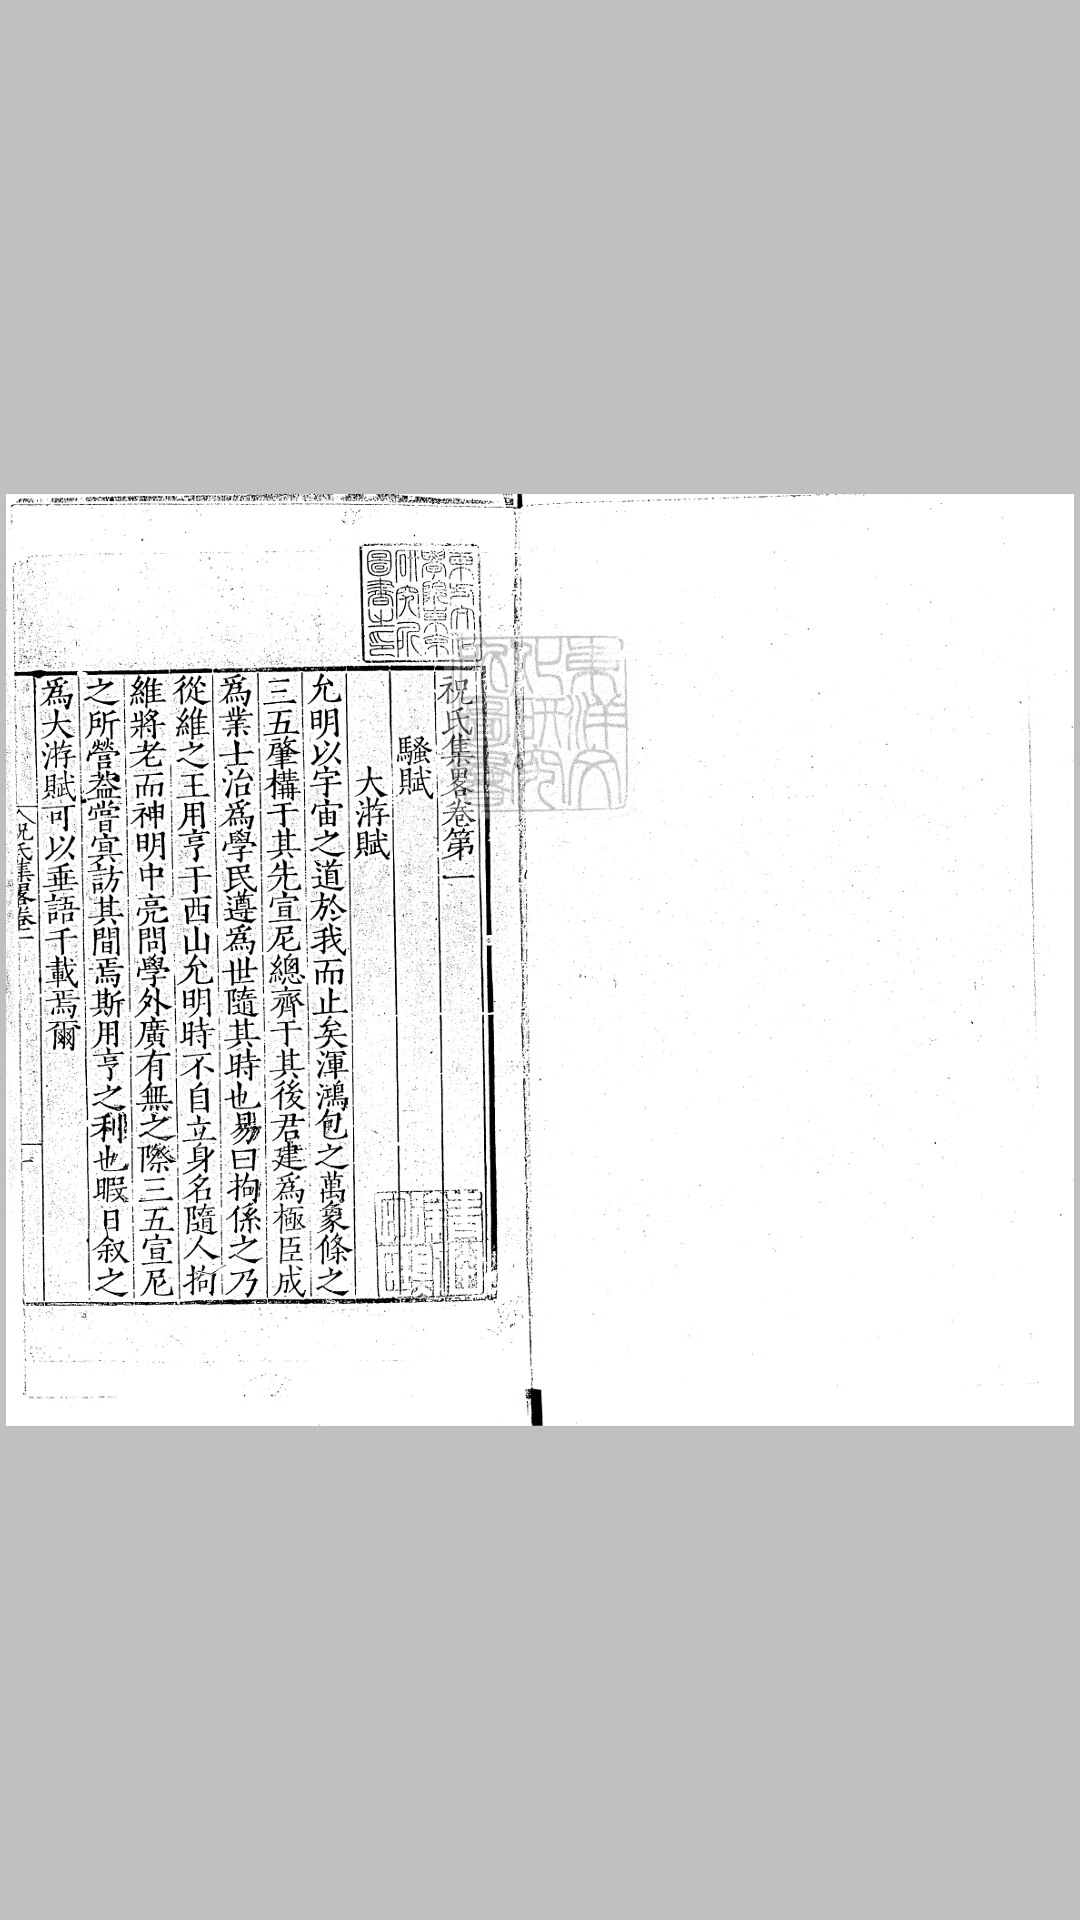 祝氏集畧卷第一
騷賦
大游賦
允明以宇宙之道於我而止矣渾鴻包之萬象條之
三五肇構于其先宣尼總齊于其後君建爲極臣成
爲業士治爲學民遵爲世隨其時也易曰拘係之乃
從維之王用亨于西山允明時不自立身名隨人拘
維將老而神明中亮問學外廣有無之際三五宣尼
之所營葢嘗寘訪其間焉斯用亨之利也暇日叙之
爲大游賦可以垂語千載焉爾
祝氏集畧卷一
一
東方文化
學院東京
研究所
圖書之印
東洋文
化研究
所圖書